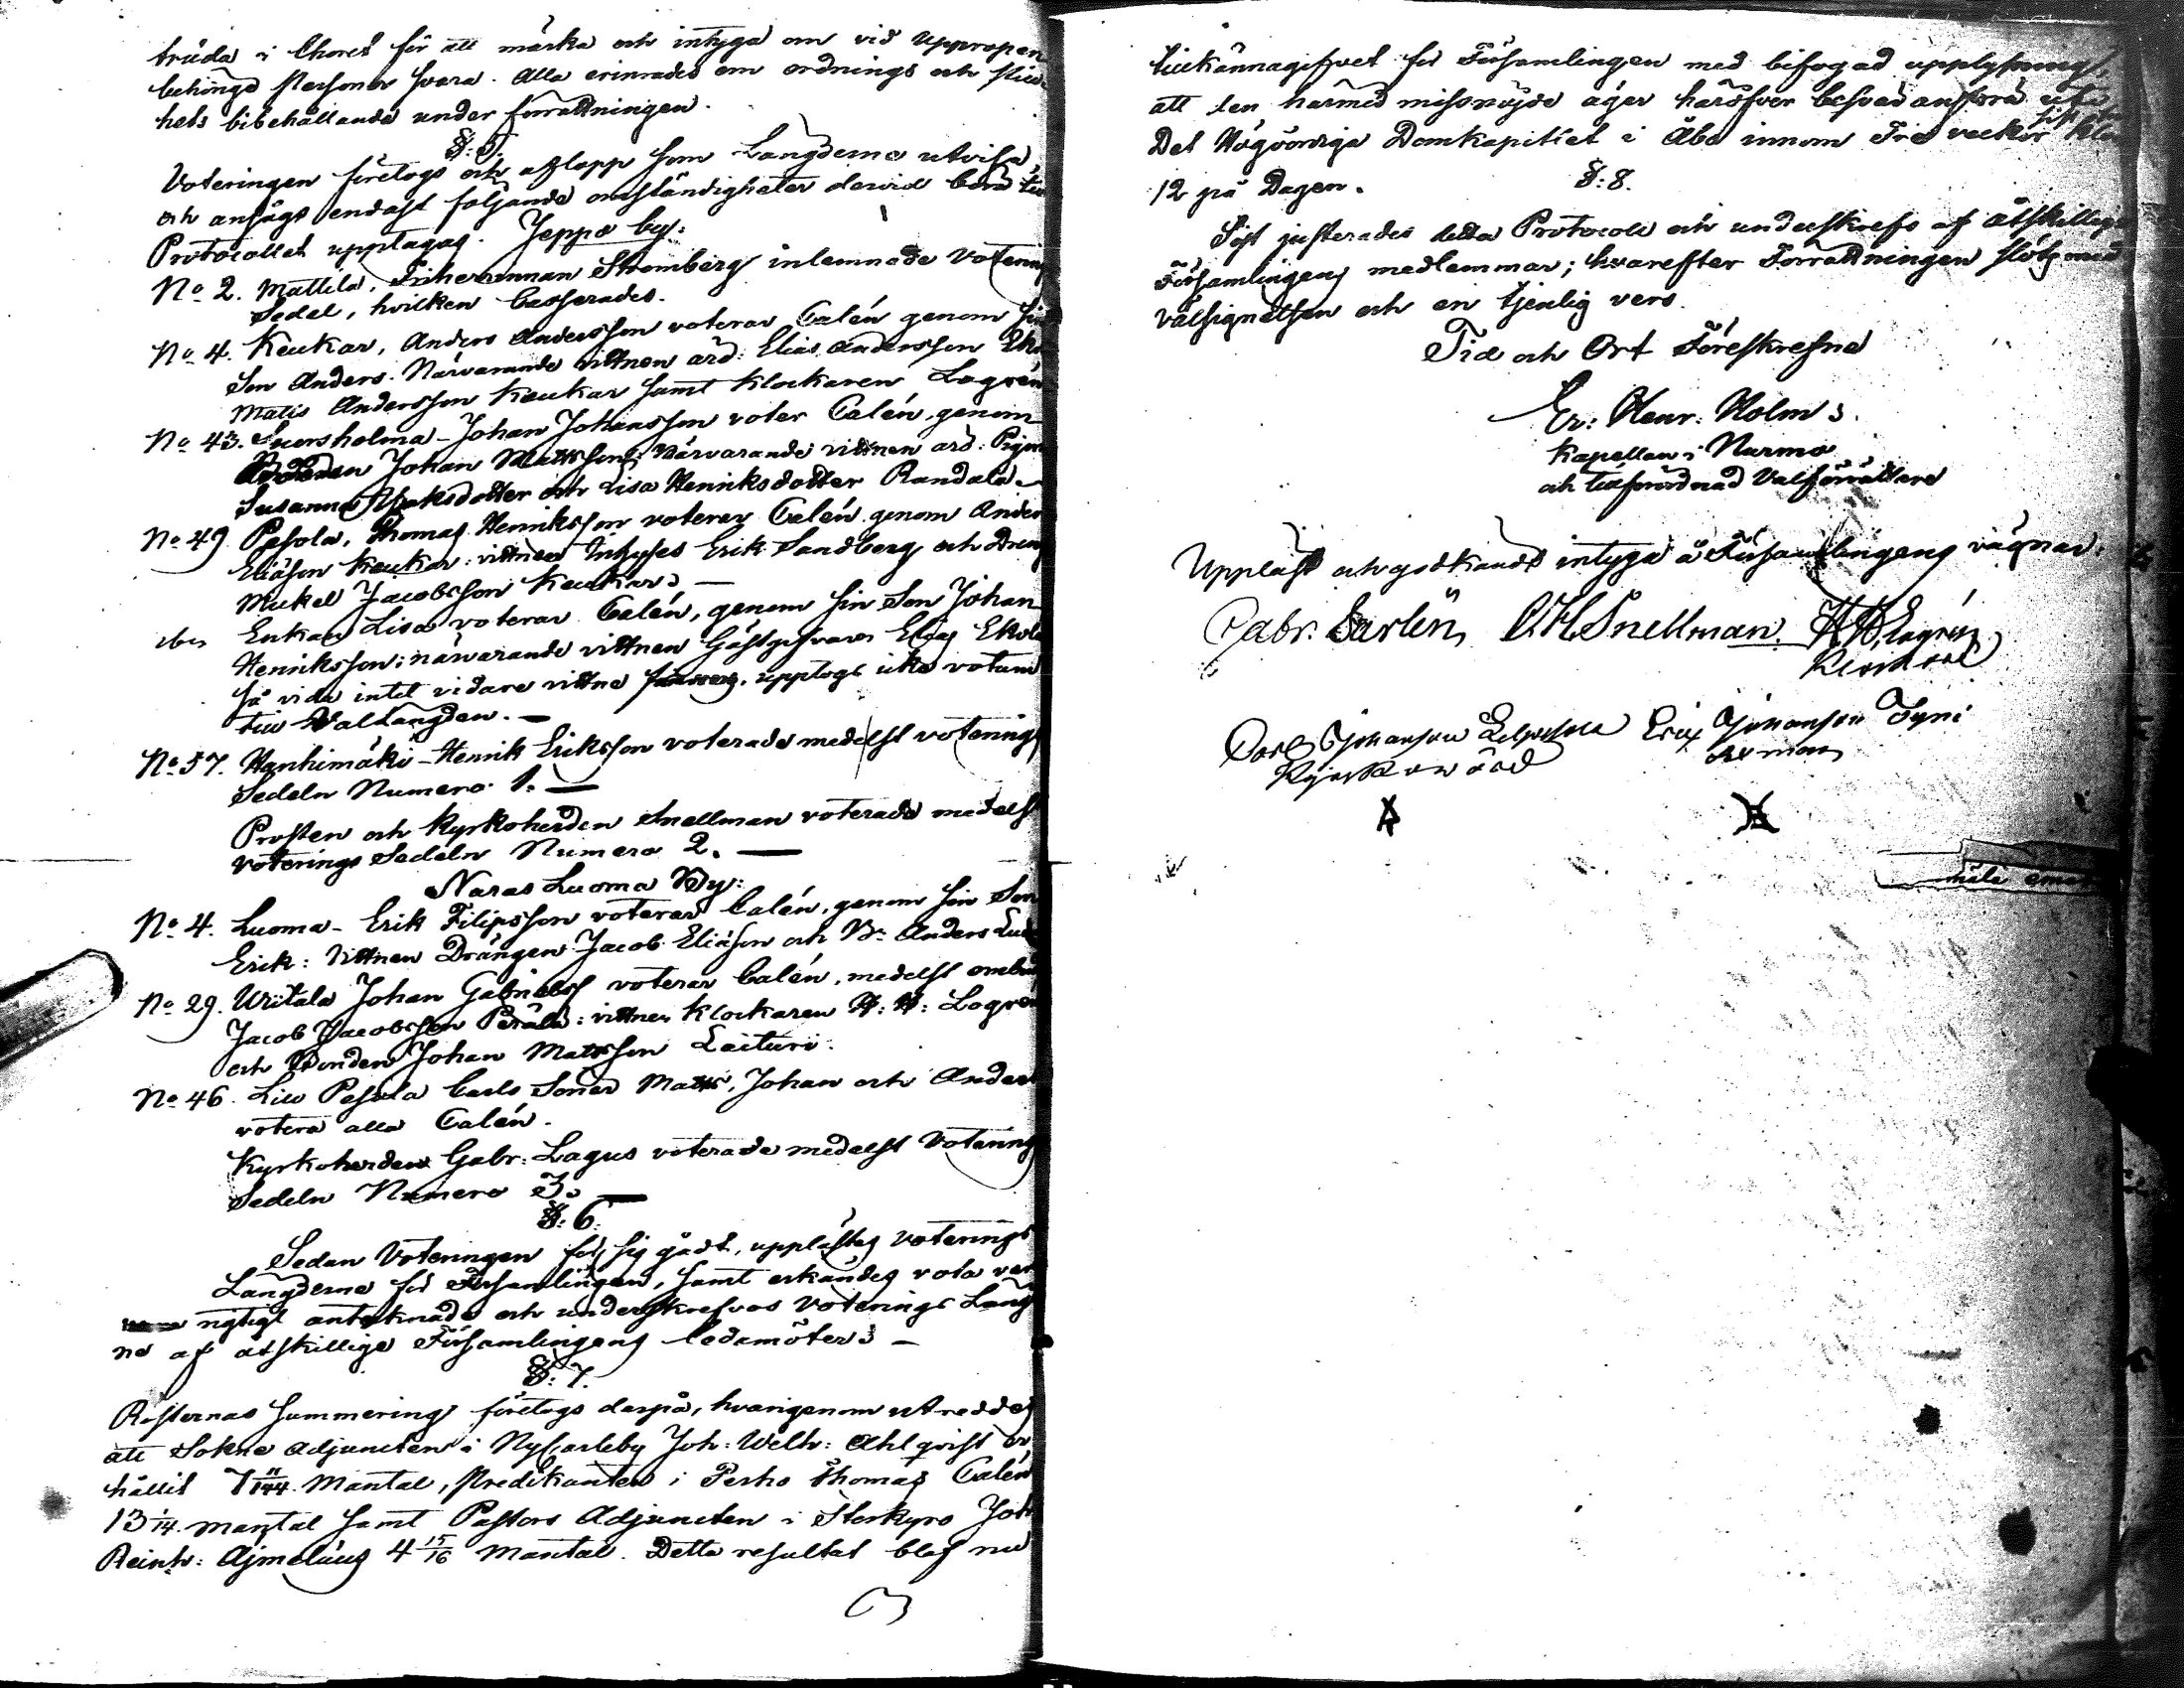 träda i Choret för att märka och intyga om vid Uppropen
behörige Personer svara. Alla erinrades om ordnings och still-
hets bibehållande under förrättningen.
§: 5.
Voteringen företogs och aflopp som Längderna utvisa,
och ansågs endast följande omständigheter dervid böra till
Protocollet upptagas. Jeppo by:
No 2. Mattila, Friherrinnan Stromberg inlemnade Voterings
Sedel, hvilken casserades.
No 4. Keukar, Anders Andersson voterar Calén genom sin
Son Anders. Närvarande vittnen äro: Elias Andersson
Matts Andersson Keukar samt Klockaren Lagrén
No 43. Johan Johansson voter Calén, genom
Johan Mattsson; Närvarande vittnen äro: Pigan
Susanna Isaksdotter och Lisa Henriksdotter Randala
No 49 Pesola, Thomas Henriksson voterar Calén genom Anders
Eliäson Keukar: vittnen Inhyses Erik Sandberg och Dreng
Mickel Jacobsson Keukar. —
Enkan Lisa voterar Calén, genom sin Son Johan
Henriksson; närvarande vittnen Gästgifvaren Elias Ekola
så vida intet vidare vittne fanns, upptogs icke votum
till Vallängden. —
No 57. Hanhimäki - Henrik Eriksson voterade medelst voterings
Sedeln Numero 1. —
Prosten och Kyrkoherden Snellman voterade medelst
voterings Sedeln Numero 2. —
Naras Luoma By:
No 4. Luoma - Erik Filipsson voterar Calén, genom sin Son
Erik: Vittnen Drängen Jacob Eliäson och Bn Anders
No 29. Writala Johan Gabrielss voterar Calén, medelst ombud
Jacob Jacobsson Perälä: vittnen Klockaren H: H: Lagren
och Bonden Johan Mattsson Laituri.
No 46. Lill Pesola Carls Söner Matts, Johan och Anders
votera alla Calén.
Kyrkoherden Gabr: Lagus voterade medelst Voterings
Sedeln Numero 3. —
§: 6.
Sedan Voteringen för sig gådt, upplästes voterings
Längderna för Församlingen, samt erkändes vota vara
rigtigt antecknade och underskrefvos Voterings Läng
na af åtskillige Församlingens ledamöter. —
§: 7.
Rösternas summering företogs derpå, hvarigenom utreddes
att Sokne Adjuncten i NyCarleby Joh: Welh: Ahlqvist er-
hållit 7 11/144 Mantal, Predikanten i Perho Thomas Calén
13 1/14 mantal samt Pastors Adjuncten i Storkyro Joh
Reinh: Ajmelæus 4 15/16 Mantal. Detta resultat blef nu
tillkännagifvet för Församlingen med bifogad upplysning,
att den härmed missnöjde äger häröfver besvär anföra
Det Högvördiga Domkapitlet i Åbo innom Tre veckor
12 på Dagen.
§: 8.
Sist justerades detta Protocoll och underskrefs af åtskillige
Församlingens medlemmar; hvarefter Förrättningen slöts med
välsignelsen och en tjenlig vers.
Tid och Ort Föreskrefne
Er: Henr: Holm
Kapellan i Nurmo
och tillförordnad Valförrättare
Uppläst och godkändt intyga å Församlingens vägnar:
Gabr. Sarlin, C.H. Snellman. H.H. Lagrén
Klockare
Carl Johansson Erik Johansson Tyni
Kyrkovärd